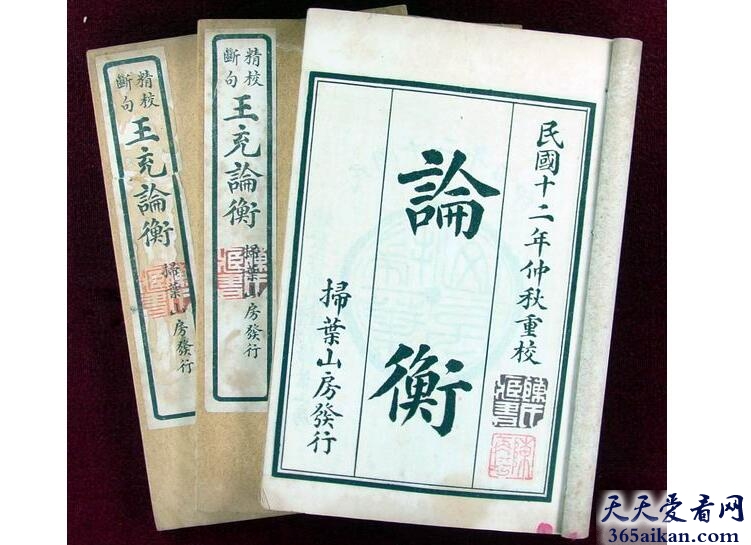 精校
斷句
王充論衡
掃葉山房發行
精校
斷句
王充論衡
掃葉山房發行
民國十二年仲秋重校
論衡
掃葉山房發行
天天爱看网
365aikan.com